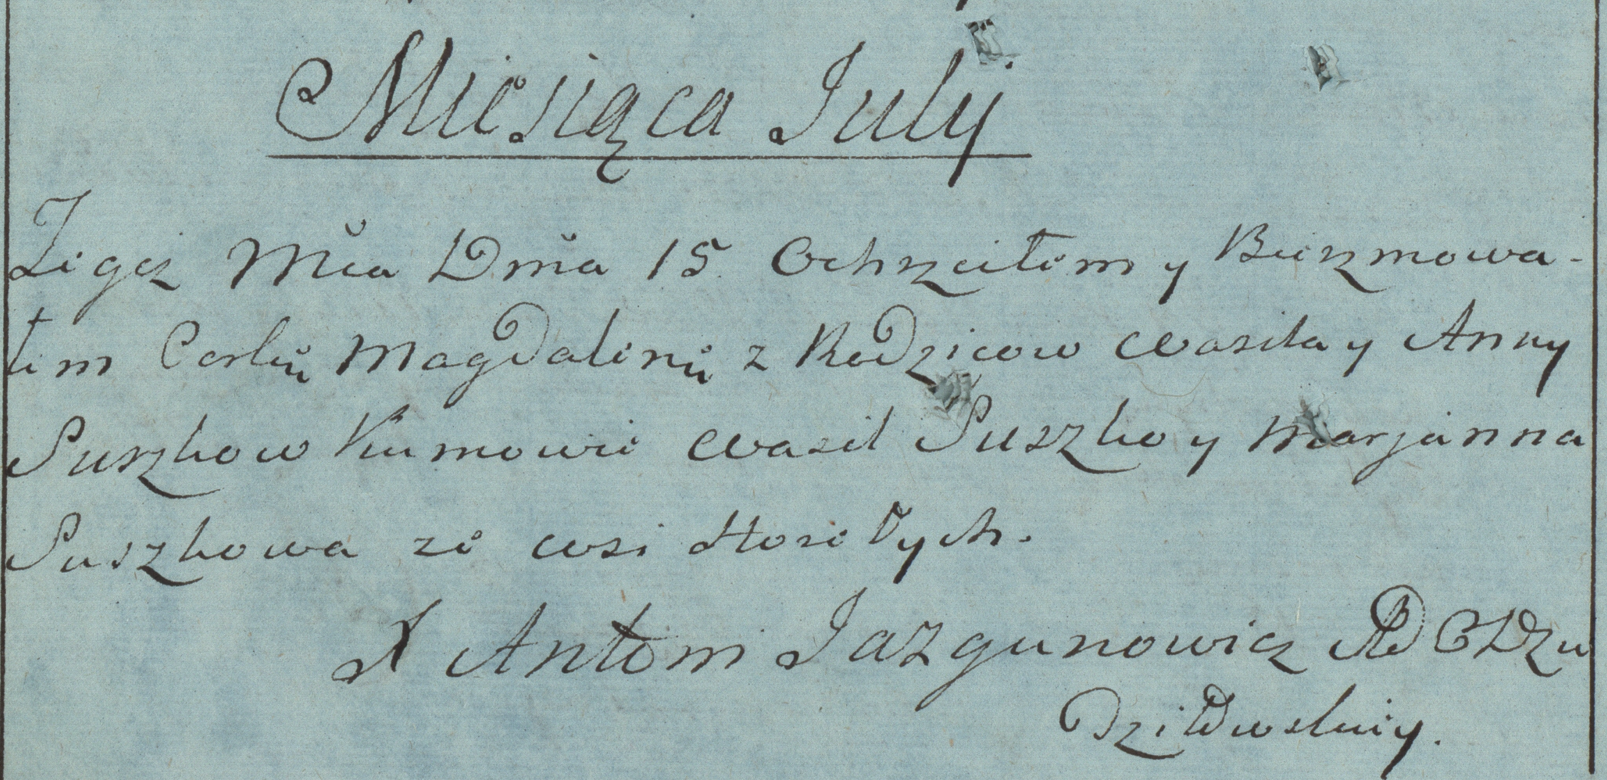 Miesiąca July
Tegoż Mca Dnia 15 Ochrzciłem y Bierzmowa-
łem Corkę Magdalenę z Rodzicow Wasila y Anny
Suszkow Kumowie Wasil Suszko y Marjanna
Suszkowa ze wsi
X Antoni Jazgunowicz